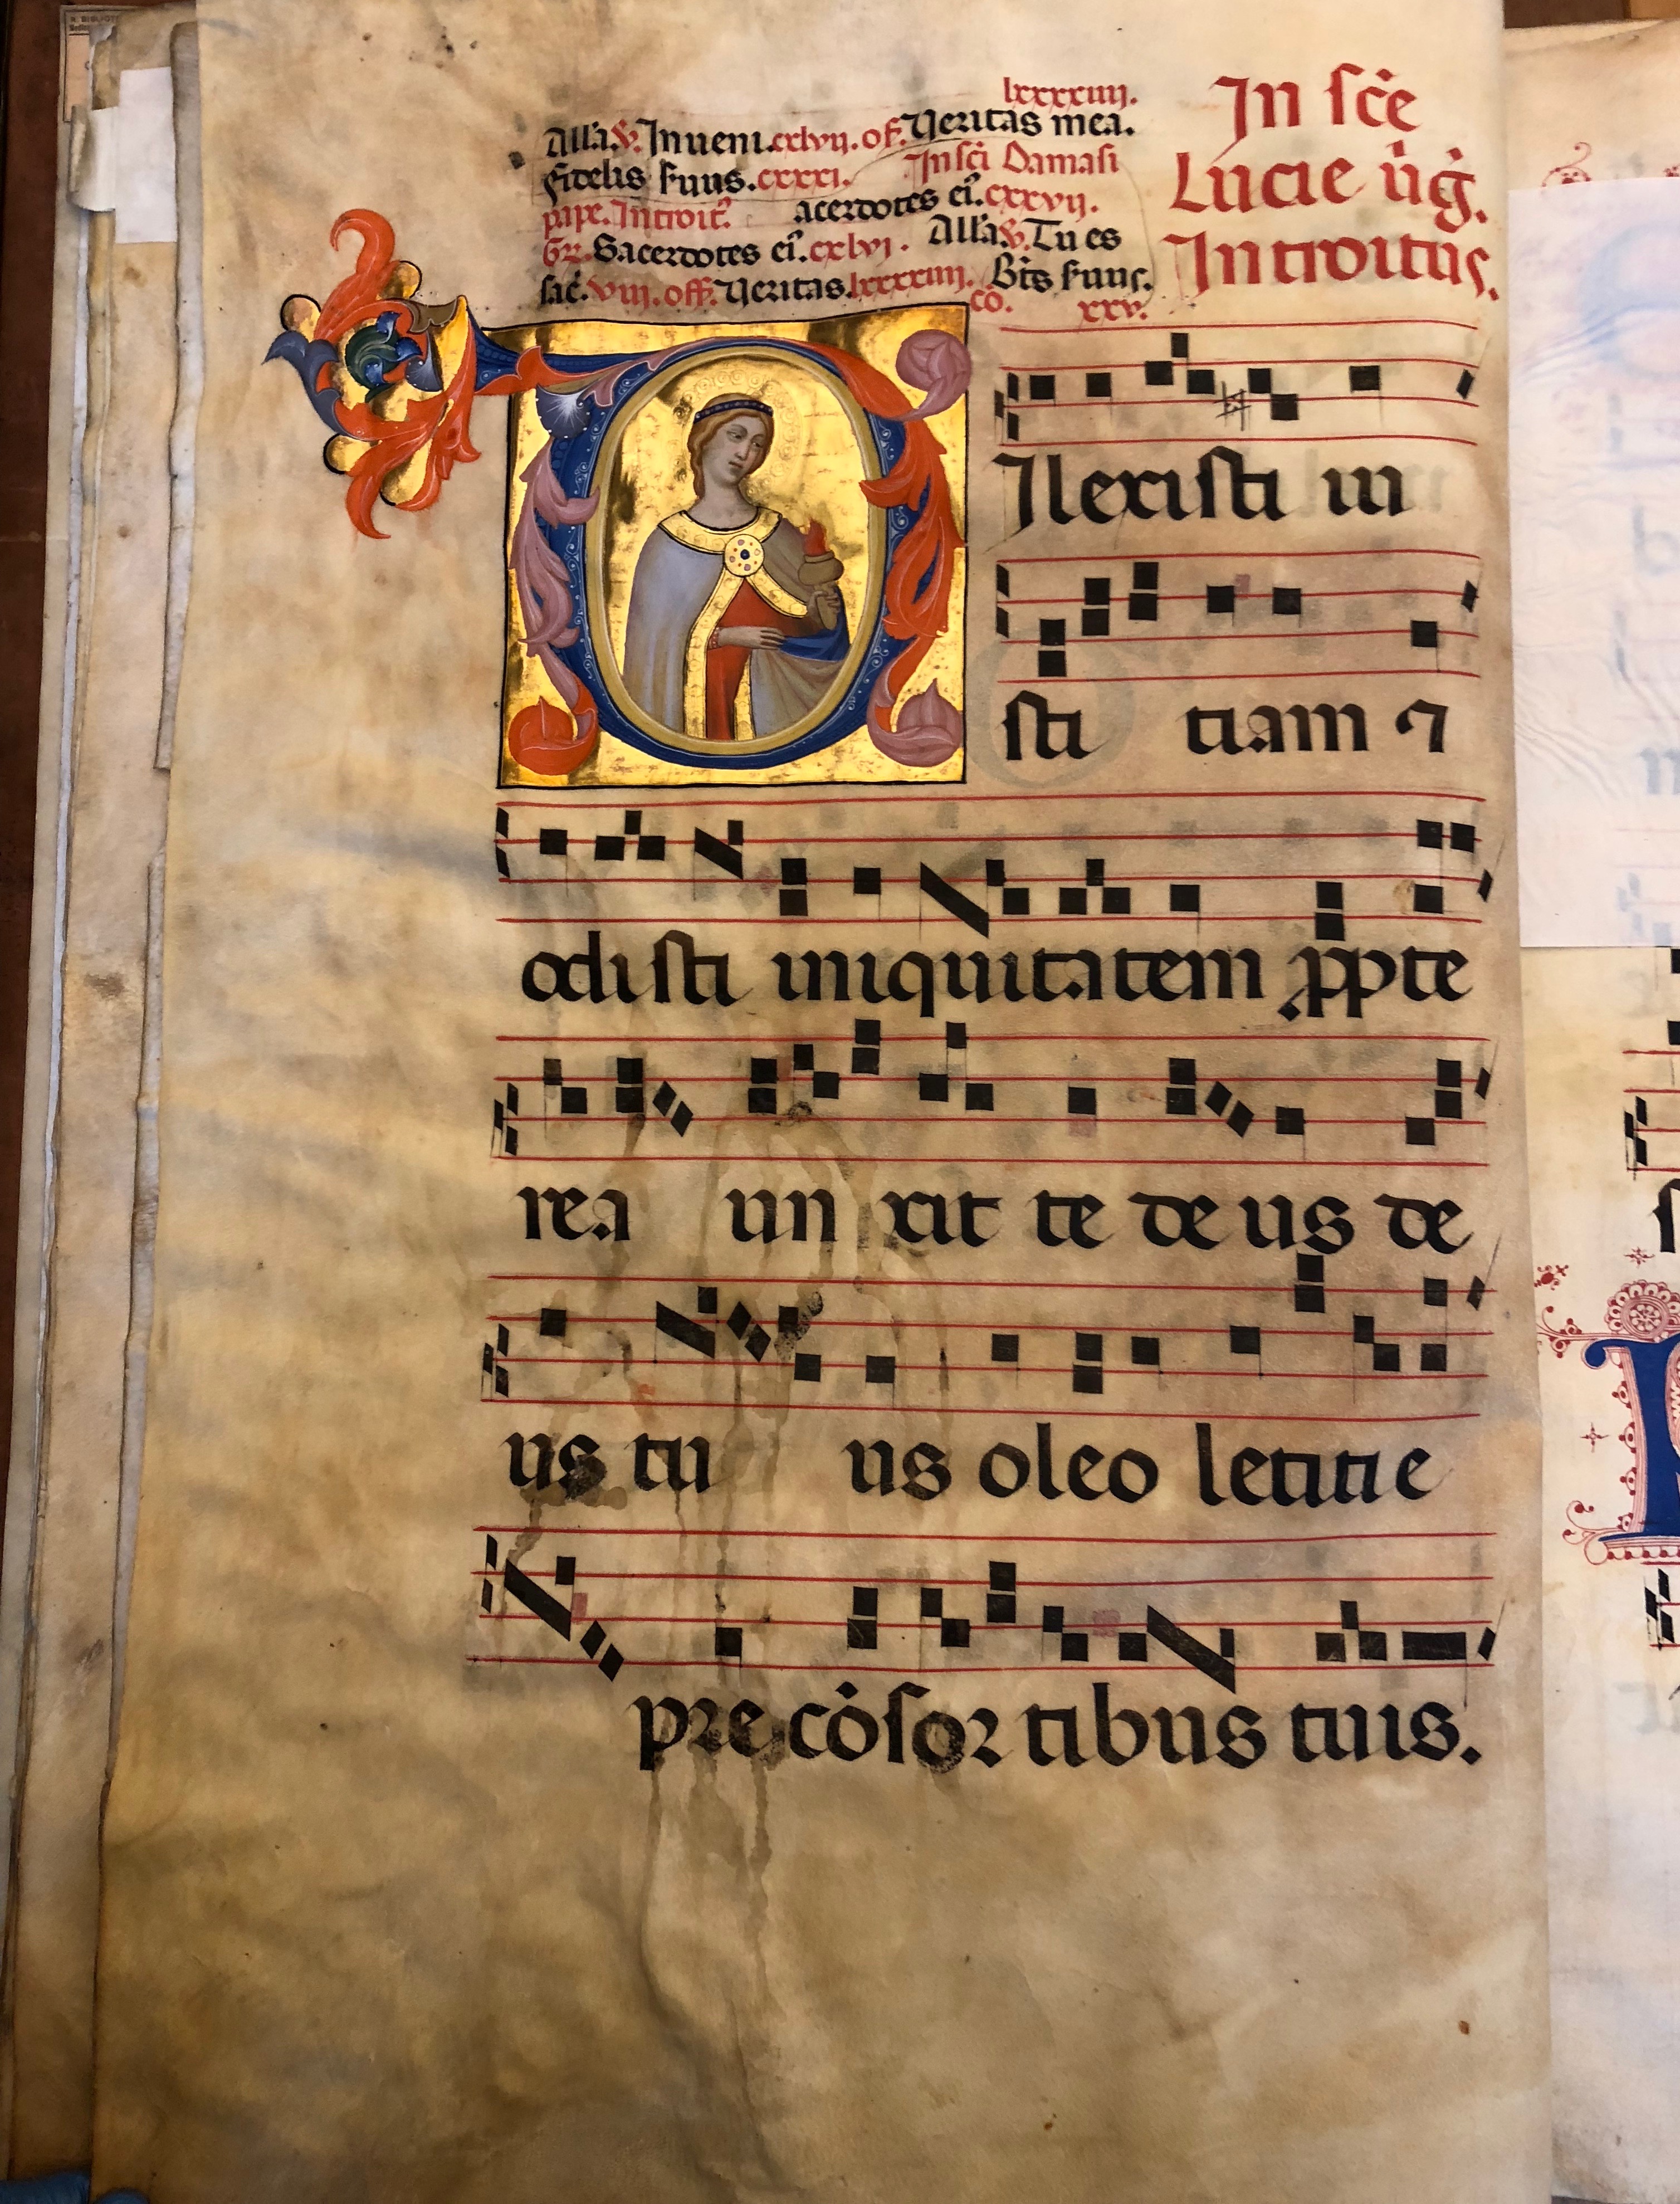 lxxxxiiij.
Alla. v̄. Inueni. cxlvij. of. Ueritas mea.
fidelis seruus. cxxxi. In sc̄i Damasi
pape. Introit. acerdotes ei. cxxvij.
Gr. Sacerdotes ei. cxlvi. Alla. v̄. Tu es
sac. viij. off. Ueritas. lxxxxiiij. Bt̄s seruus.
co. xxv.
In sc̄e
Lucie uig̈.
Introitus.
Ilexisti iu
sti tiam ⁊
odisti iniquitatem ꝓpte
rea un xit te de us de
us tu us oleo letitie
pre cōsor tibus tuis.